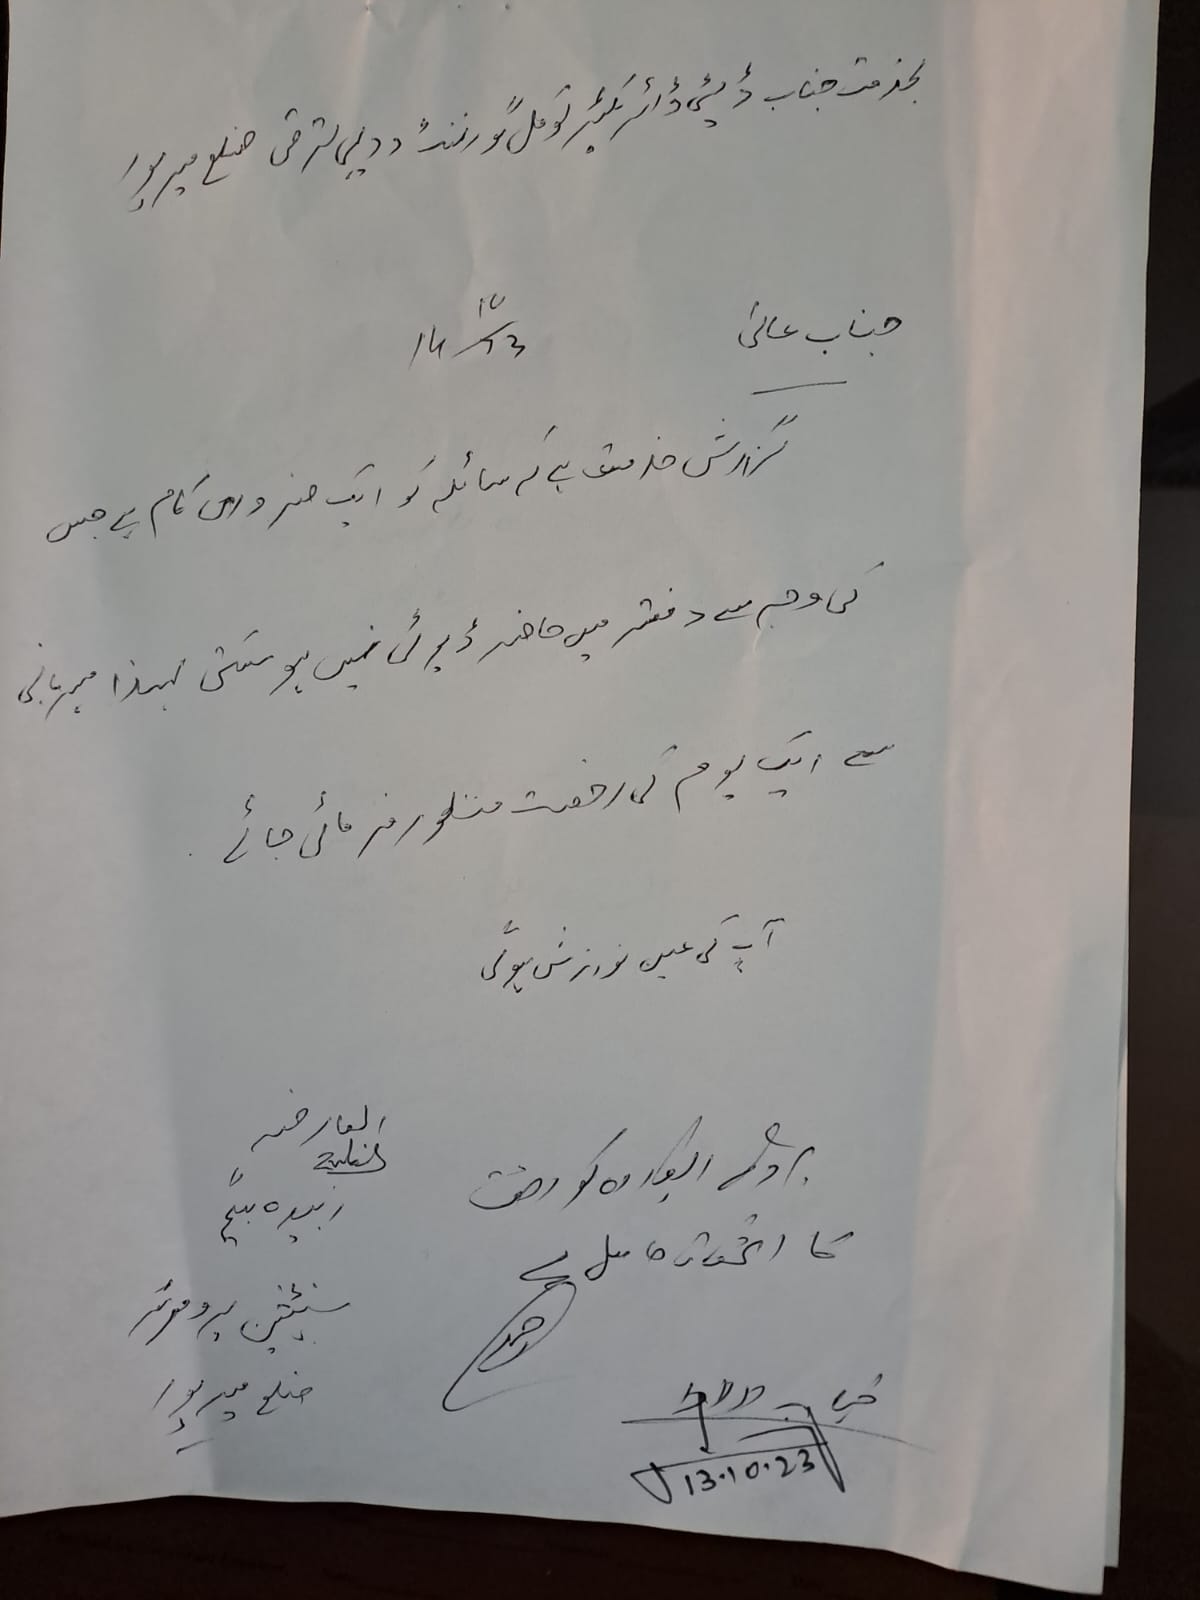 بخدمت جناب ڈپٹی ڈائریکٹر لوکل گورنمنٹ و دیہی ترقی ضلع میرپور
جناب عالی
گزارش خدمت ہے کہ سائلہ کو ایک ضروری کام ہے جس
کی وجہ سے دفتر میں حاضر ڈیوٹی نہیں ہو سکتی لہذا مہربانی
سے ایک یوم کی رخصت منظور فرمائی جائے
آپ کی عین نوازش ہوگی
العارضہ
زبیدہ بیگم
ضلع میرپور
کو رخصت
کا استحقاق حاصل ہے
13.10.23